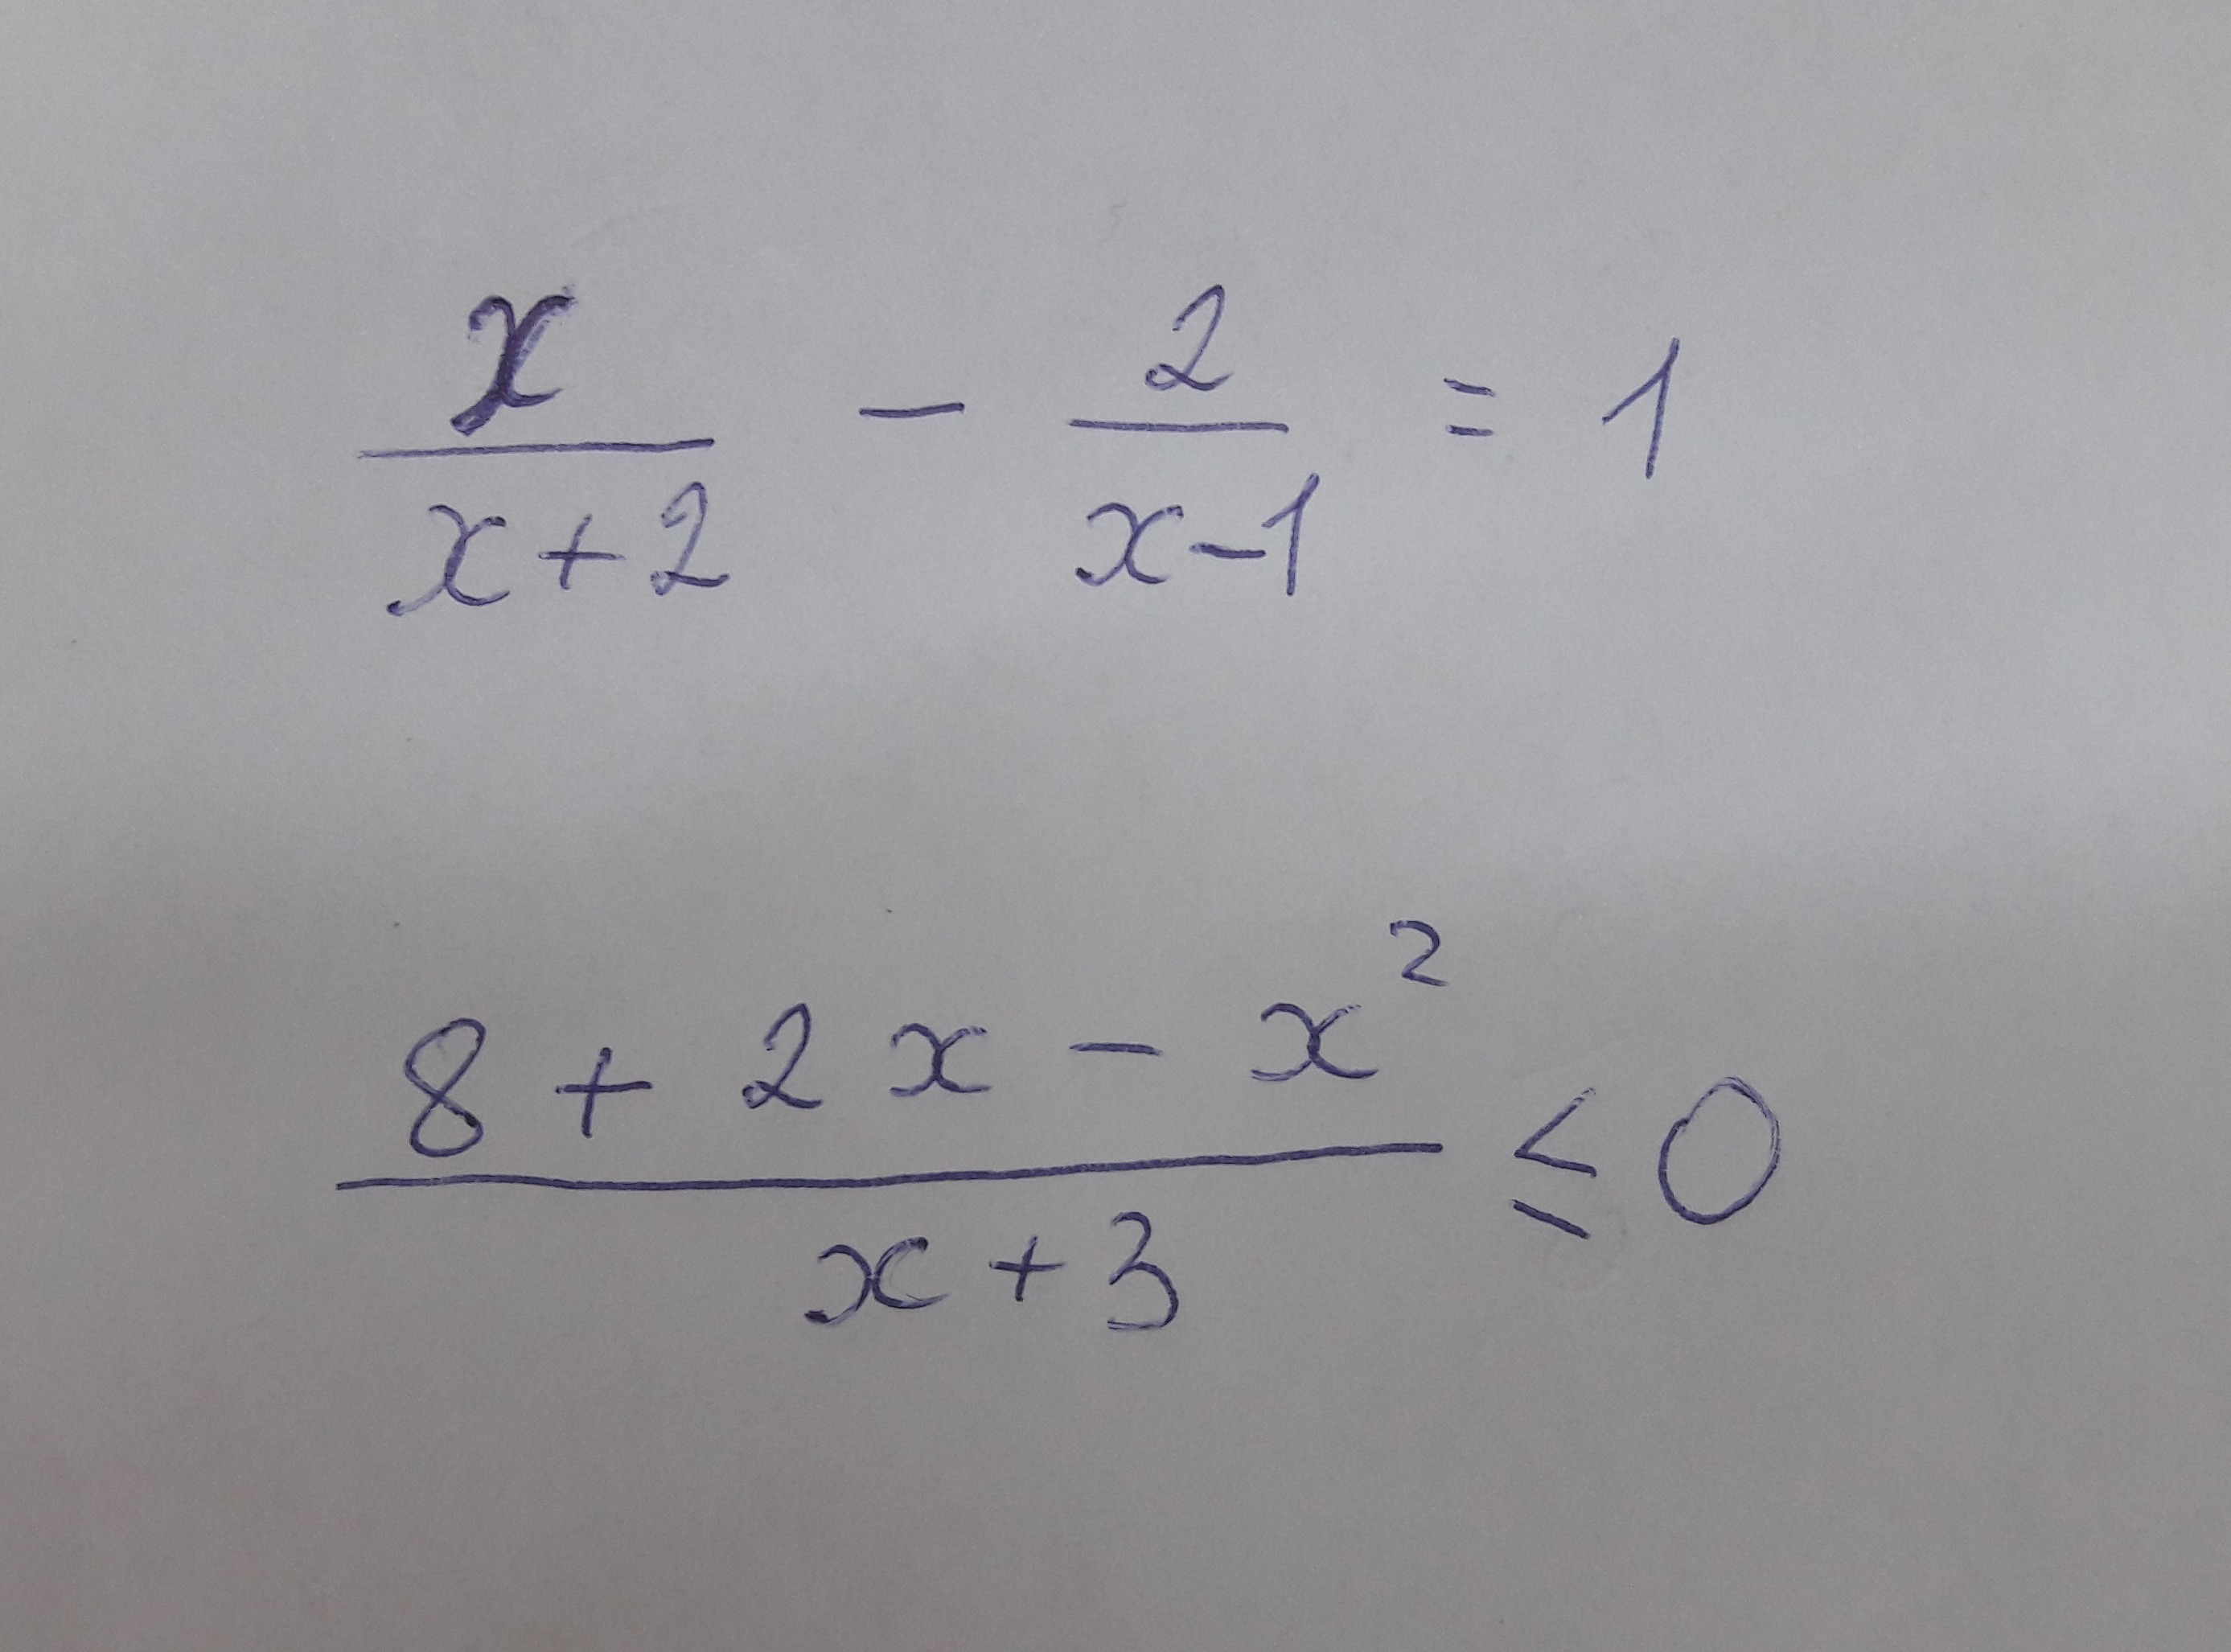 x/(x+2) - 2/(x-1) = 1
(8 + 2x - x²)/(x+3) ≤ 0